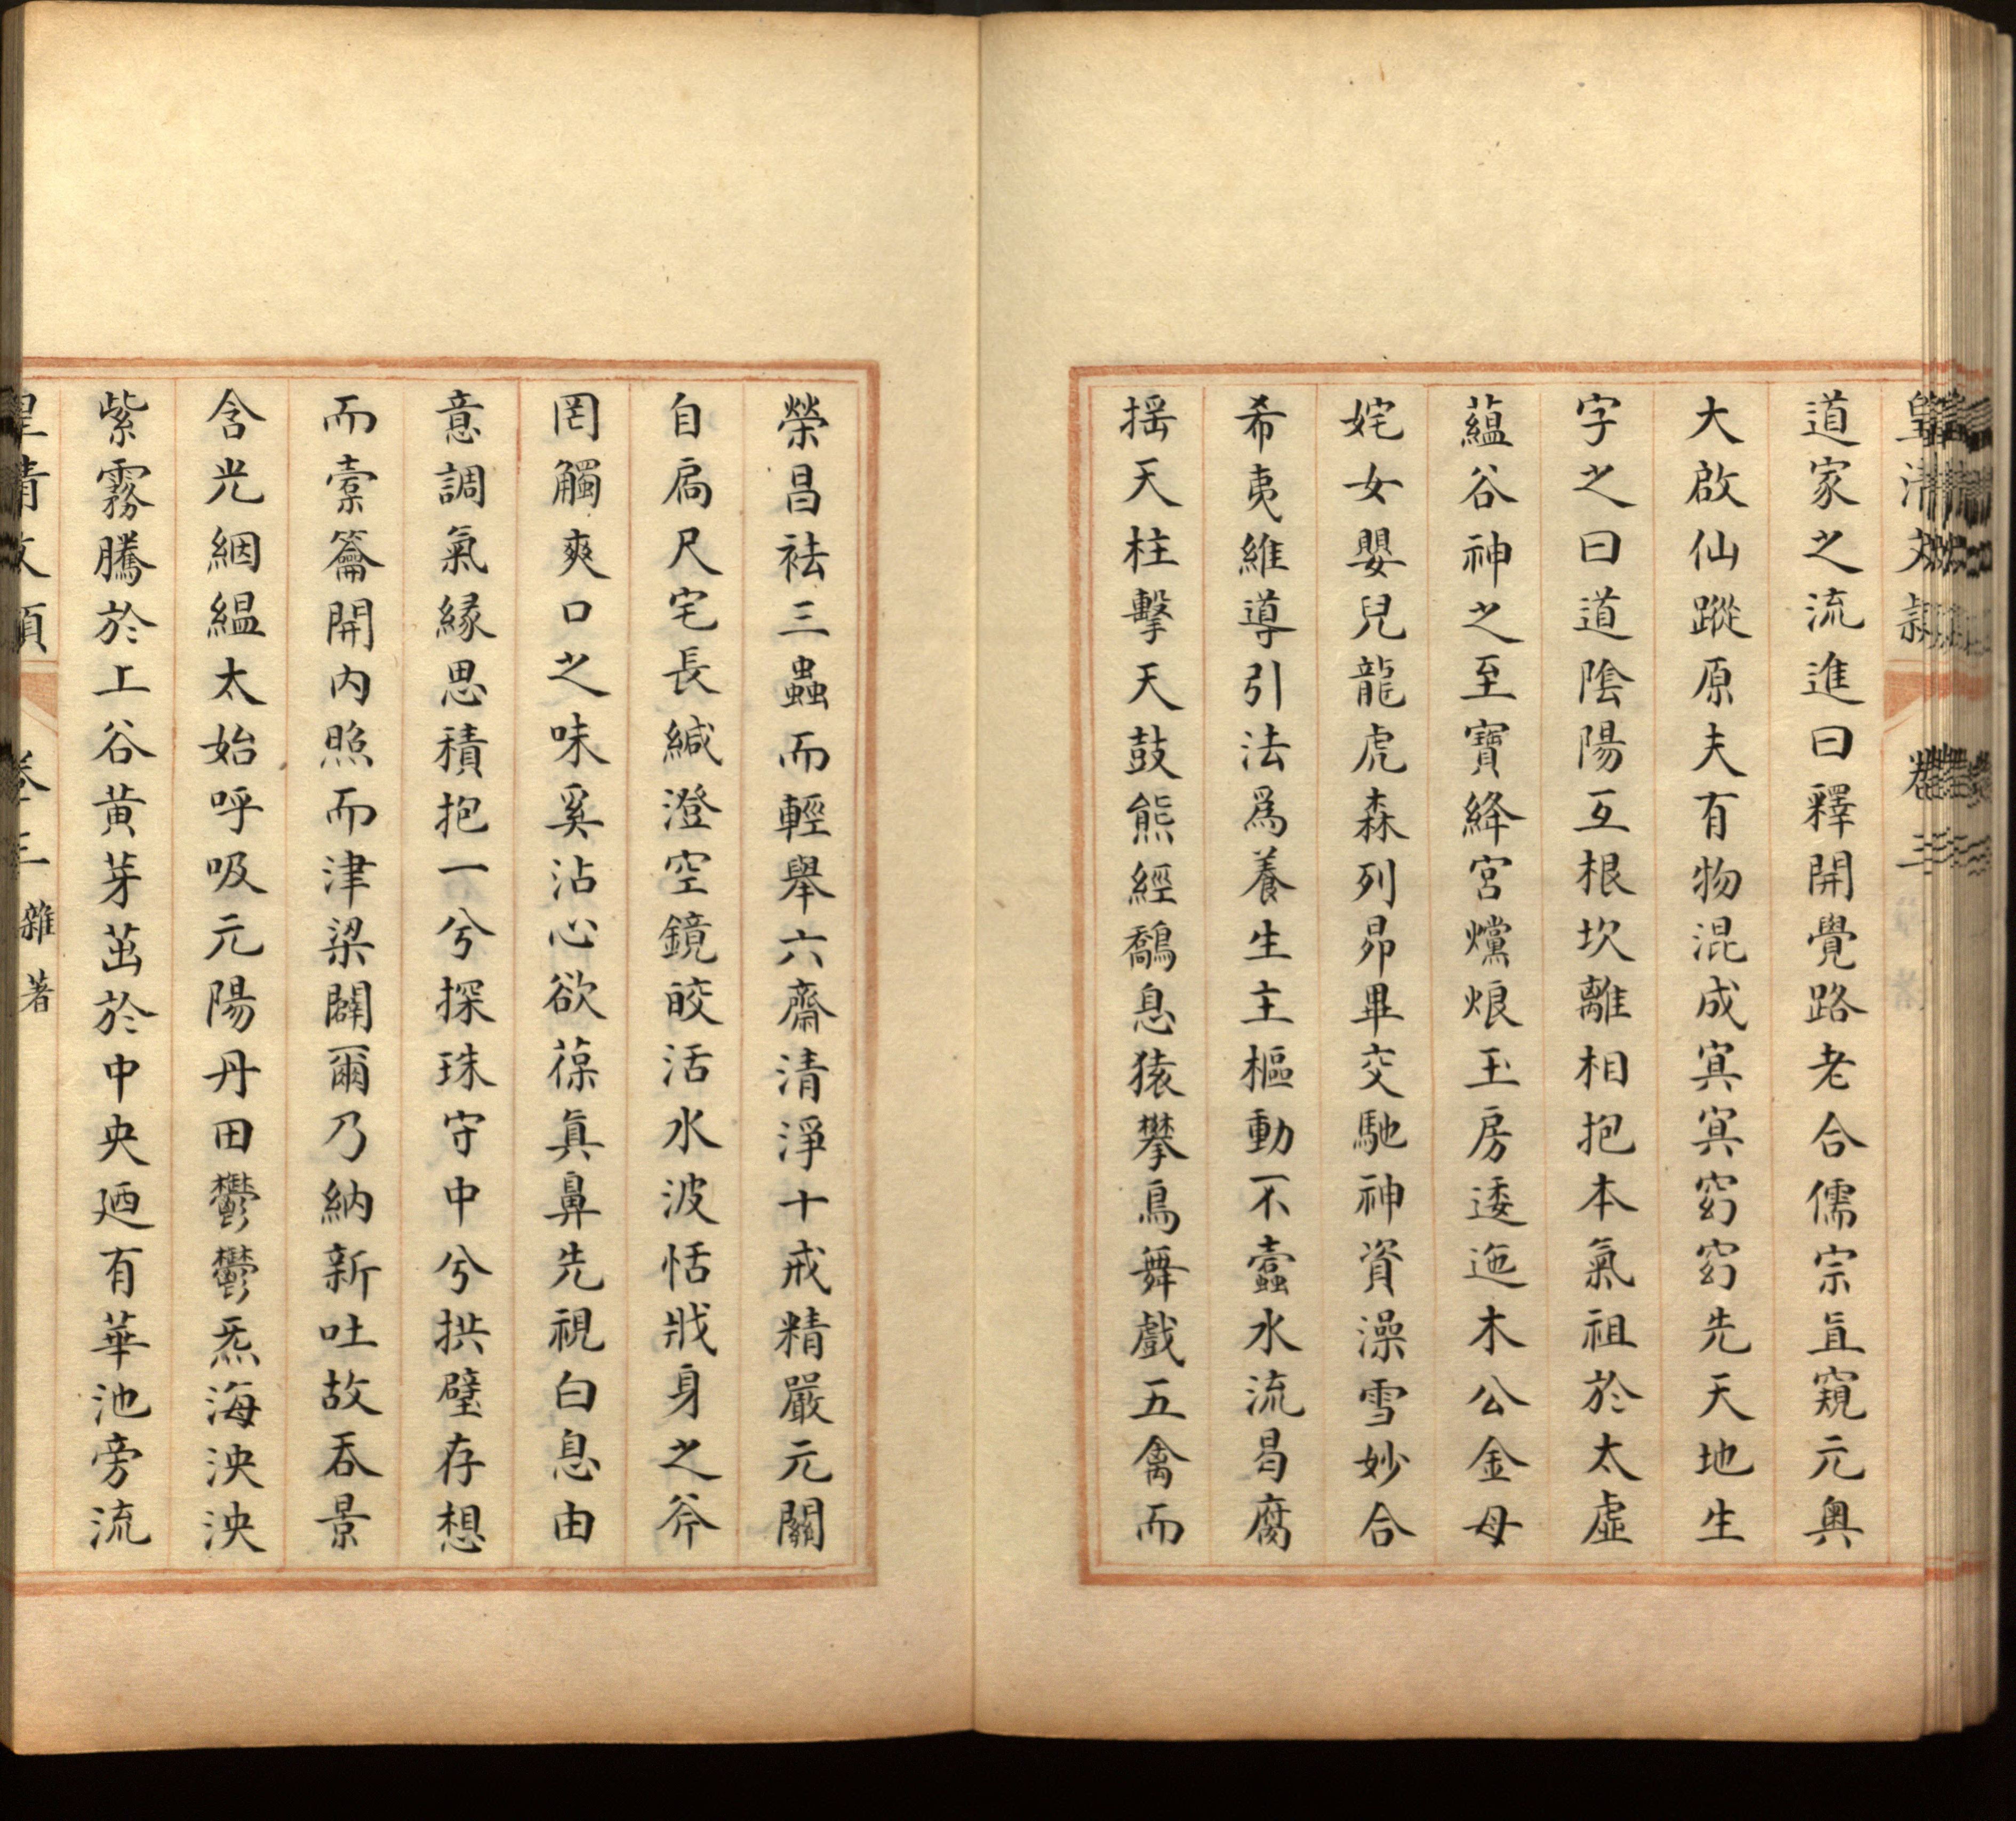 皇清文穎
卷三
道家之流進曰釋開覺路老合儒宗亘窺元奥
大啟仙蹤原夫有物混成寘寘窈窈先天地生
字之曰道陰陽互根坎離相抱本氣祖於太虛
蘊谷神之至寶絳宮爣烺玉房逶迤木公金母
姹女嬰兒龍虎森列昴畢交馳神資澡雪妙合
希夷維導引法爲養生主樞動不蠹水流曷腐
揺天柱擊天鼓熊經鷸息猿攀鳥舞戲五禽而
榮昌袪三蟲而輕舉六齋清淨十戒精嚴元關
自扃尺宅長緘澄空鏡皎活水波恬戕身之斧
罔觸爽口之味奚沾心欲葆眞鼻先視白息由
意調氣緣思積抱一兮探珠守中兮拱璧存想
而橐籥開內照而津梁闢爾乃納新吐故呑景
含光絪縕太始呼吸元陽丹田鬱鬱炁海泱泱
紫霧騰於上谷黃芽茁於中央廼有華池旁流
皇清文穎
卷三
雜著